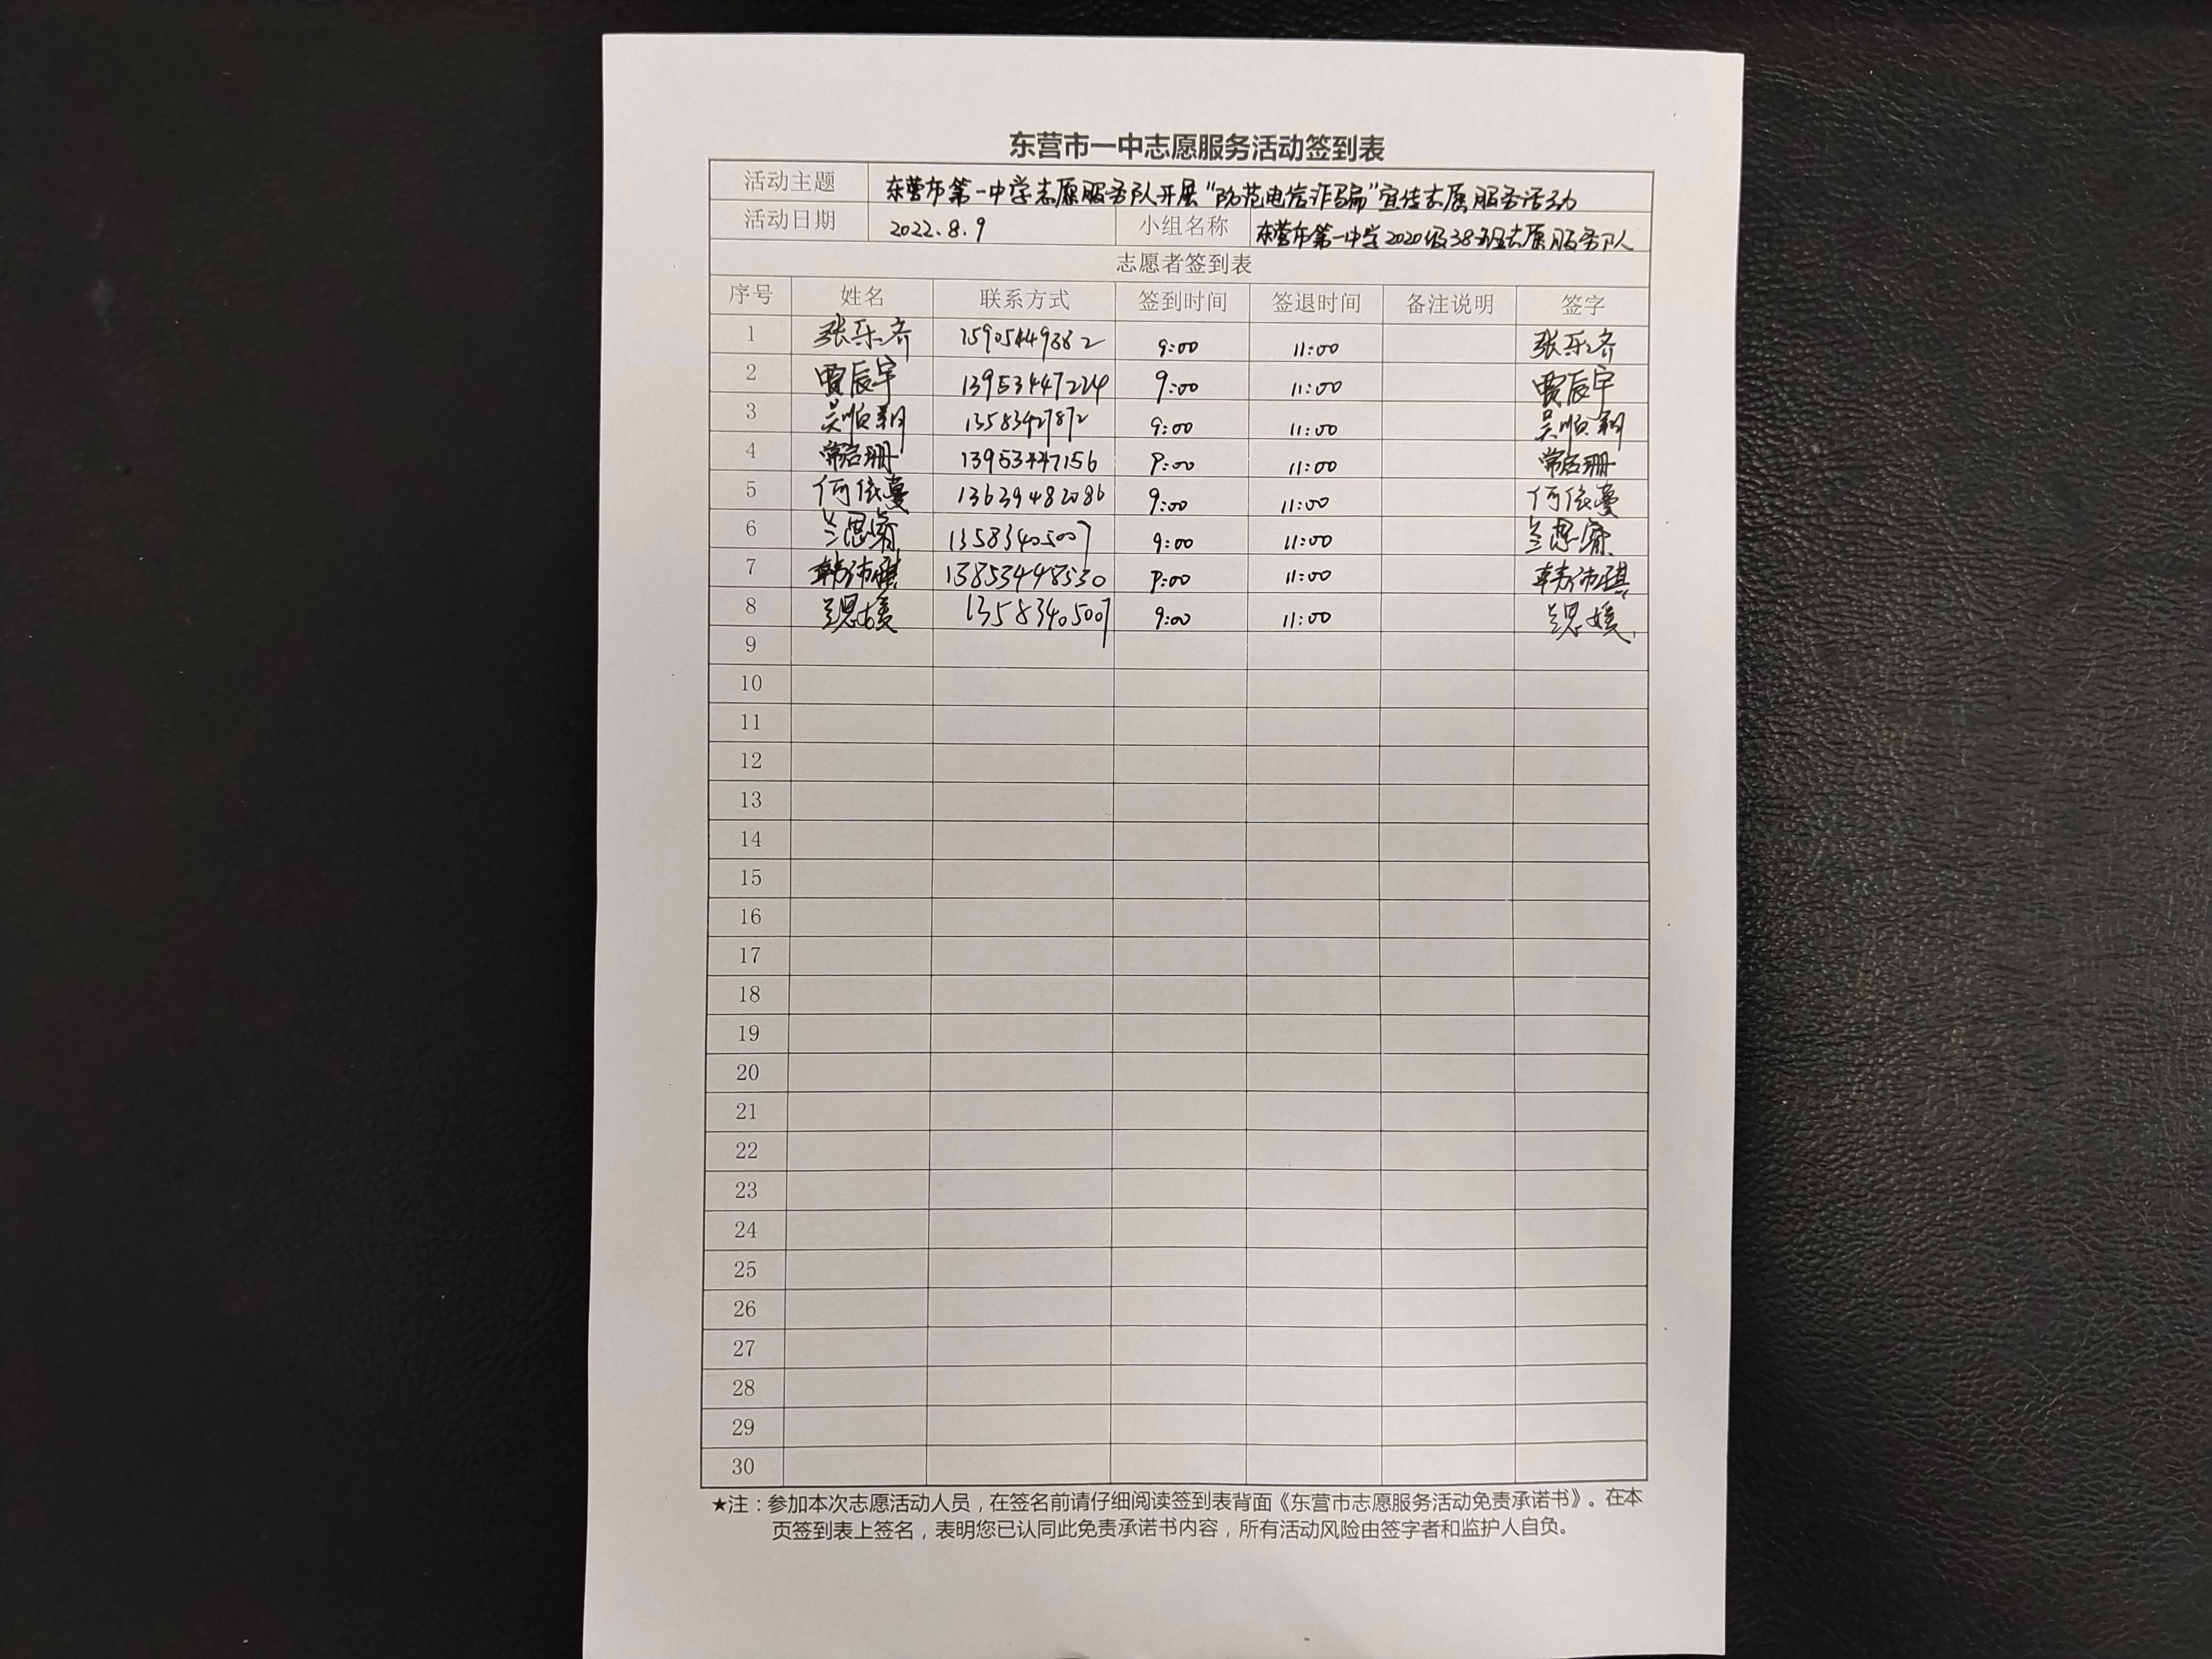 东营市一中志愿服务活动签到表
活动主题 东营市第一中学志愿服务队开展“防范电信诈骗”宣传志愿服务活动
活动日期 2022.8.9 小组名称 东营市第一中学2020级38班志愿服务队
志愿者签到表
序号 姓名 联系方式 签到时间 签退时间 备注说明 签字
1 张乐齐 9:00 11:00 张乐齐
2 贾辰宇 13953447224 9:00 11:00 贾辰宇
3 吴顺翔 9:00 11:00 吴顺翔
4 常启珊 13953447156 9:00 11:00 常启珊
5 何依蔓 13639482086 9:00 11:00 何依蔓
6 兰思 13583405007 9:00 11:00 兰思
7 韩沛琪 13853448530 9:00 11:00 韩沛琪
8 兰思媛 13583405007 9:00 11:00 兰思媛
9
10
11
12
13
14
15
16
17
18
19
20
21
22
23
24
25
26
27
28
29
30
★注：参加本次志愿活动人员，在签名前请仔细阅读签到表背面《东营市志愿服务活动免责承诺书》。在本
页签到表上签名，表明您已认同此免责承诺书内容，所有活动风险由签字者和监护人自负。